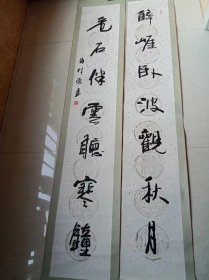 醉崖卧波觀秋月
危石伴雲聽寒鐘